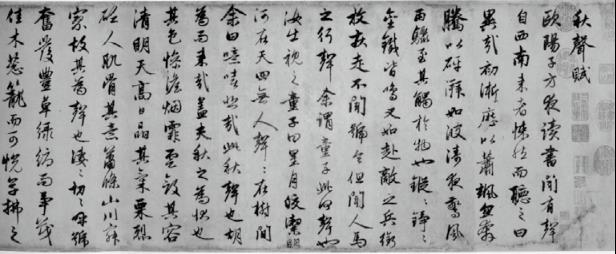 秋聲賦
歐陽子方夜讀書聞有聲
自西南来者悚然而聽之曰
異哉初淅瀝以蕭颯忽奔
騰以砰湃如波濤夜驚風
雨驟至其觸於物也鏦〻錚〻
金鐵皆鳴又如赴敵之兵銜
枚疾走不聞號令但聞人馬
之行聲余謂童子此何聲也
汝出視之童子曰星月皎潔明
河在天四無人聲〻在樹間
余曰噫嘻悲哉此秋聲也胡
為而来哉盖夫秋之為狀也
其色慘淡烟霏雲斂其容
清明天高日晶其氣栗冽
砭人肌骨其意蕭條山川寂
寥故其為聲也凄〻切〻呼號
奮發豐草緑縟而争茂
佳木葱蘢而可悦草拂之